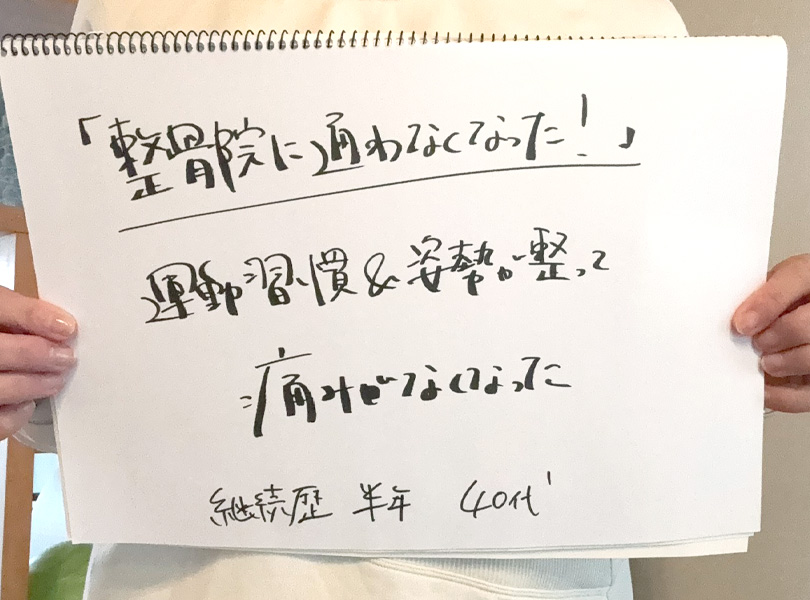 「整骨院に通わなくなった!」
運動習慣&姿勢が整って
痛みがなくなった
継続歴 半年 40代